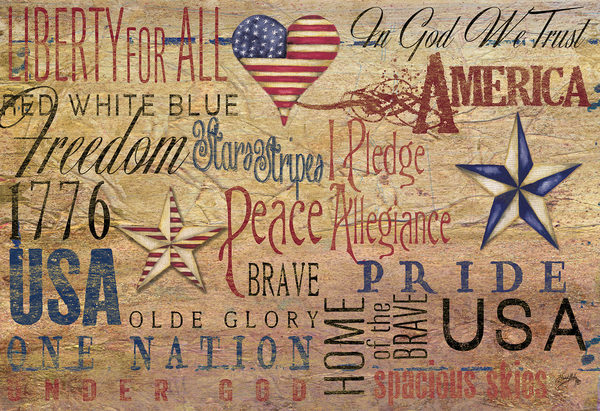 LIBERTY FOR ALL
In God We Trust
RED WHITE BLUE
AMERICA
Freedom
Stars Stripes
I Pledge
Allegiance
1776
Peace
USA
BRAVE
PRIDE
OLDE GLORY
HOME
of the
BRAVE
USA
ONE NATION
UNDER GOD
spacious skies